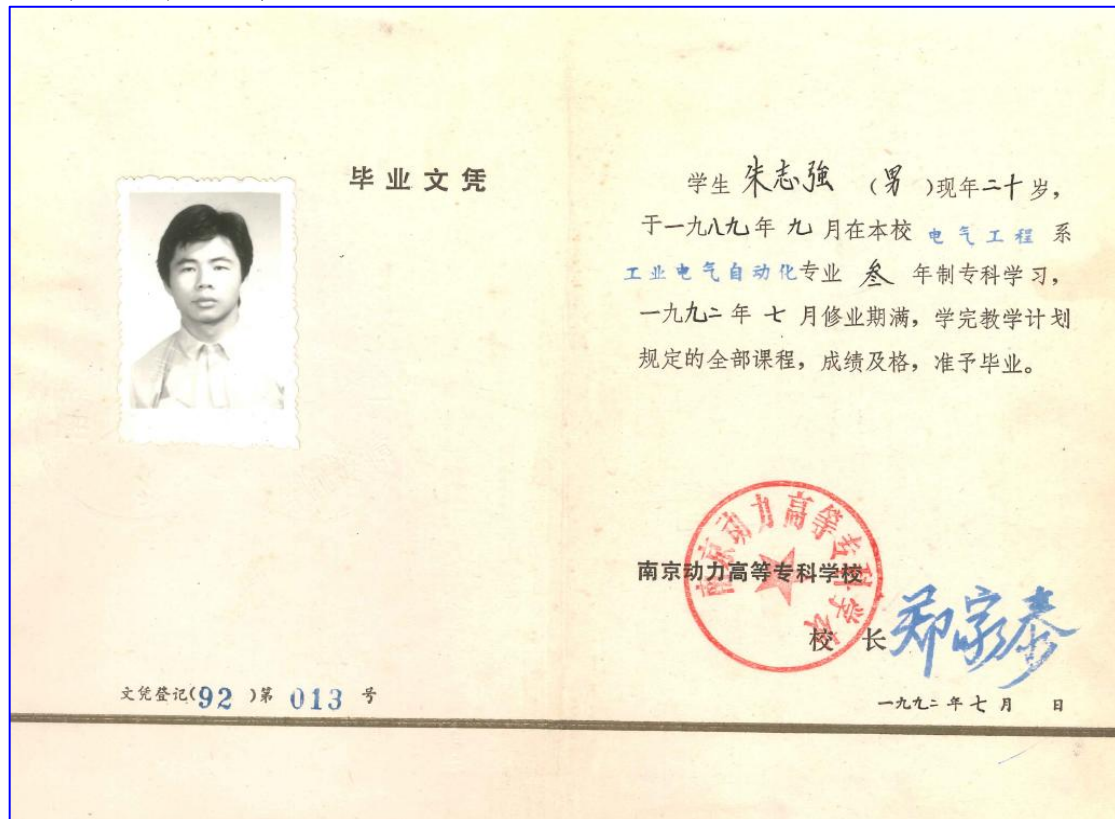 毕业文凭
文凭登记(92)第 013 号
学生 朱志強 (男)现年二十岁，
于一九八九年 九 月在本校 电气工程 系
工业电气自动化专业 叁 年制专科学习，
一九九二年 七 月修业期满，学完教学计划
规定的全部课程，成绩及格，准予毕业。
南京动力高等专科学校
南京动力高等专科学校
校 长 郑家泰
一九九二年七月 日